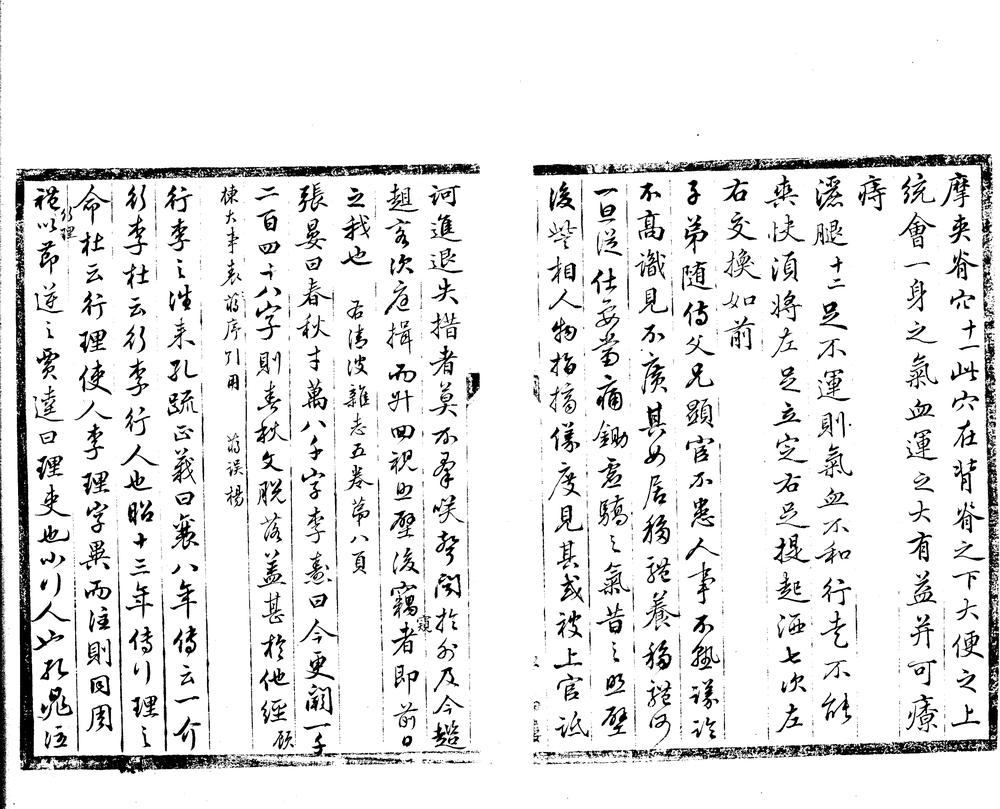 摩夾脊穴十一此穴在背脊之下大便之上
統會一身之氣血運之大有益并可療
痔
灑腿十二足不運則氣血不和行走不能
爽快須將左足立定右足提起洒七次左
右交換如前
子弟随侍父兄顯官不患人事不熟議論
不高識見不廣其如居移氣養移體何
一旦從仕要當痛鋤虛驕之氣昔之照壁
後訾相人物指摘儀度見其或被上官詆
訶進退失措者莫不羣咲聲聞於外及今趨
趄客次庭揖而升回視照壁後竊者即前日
窺
之我也 右清波雜志五卷第八頁
張晏曰春秋才萬八千字李燾曰今更闕一千
二百四十八字則春秋文脫落蓋甚於他經 顧
棟大事表蔣序引用 蔣誤楊
行李之往來孔疏正義曰襄八年傳云一介
行李杜云行李行人也昭十三年傳行理之
命杜云行理使人李理字異而注則同周
語行理以節逆之賈逵曰理吏也小行人也孔晁注